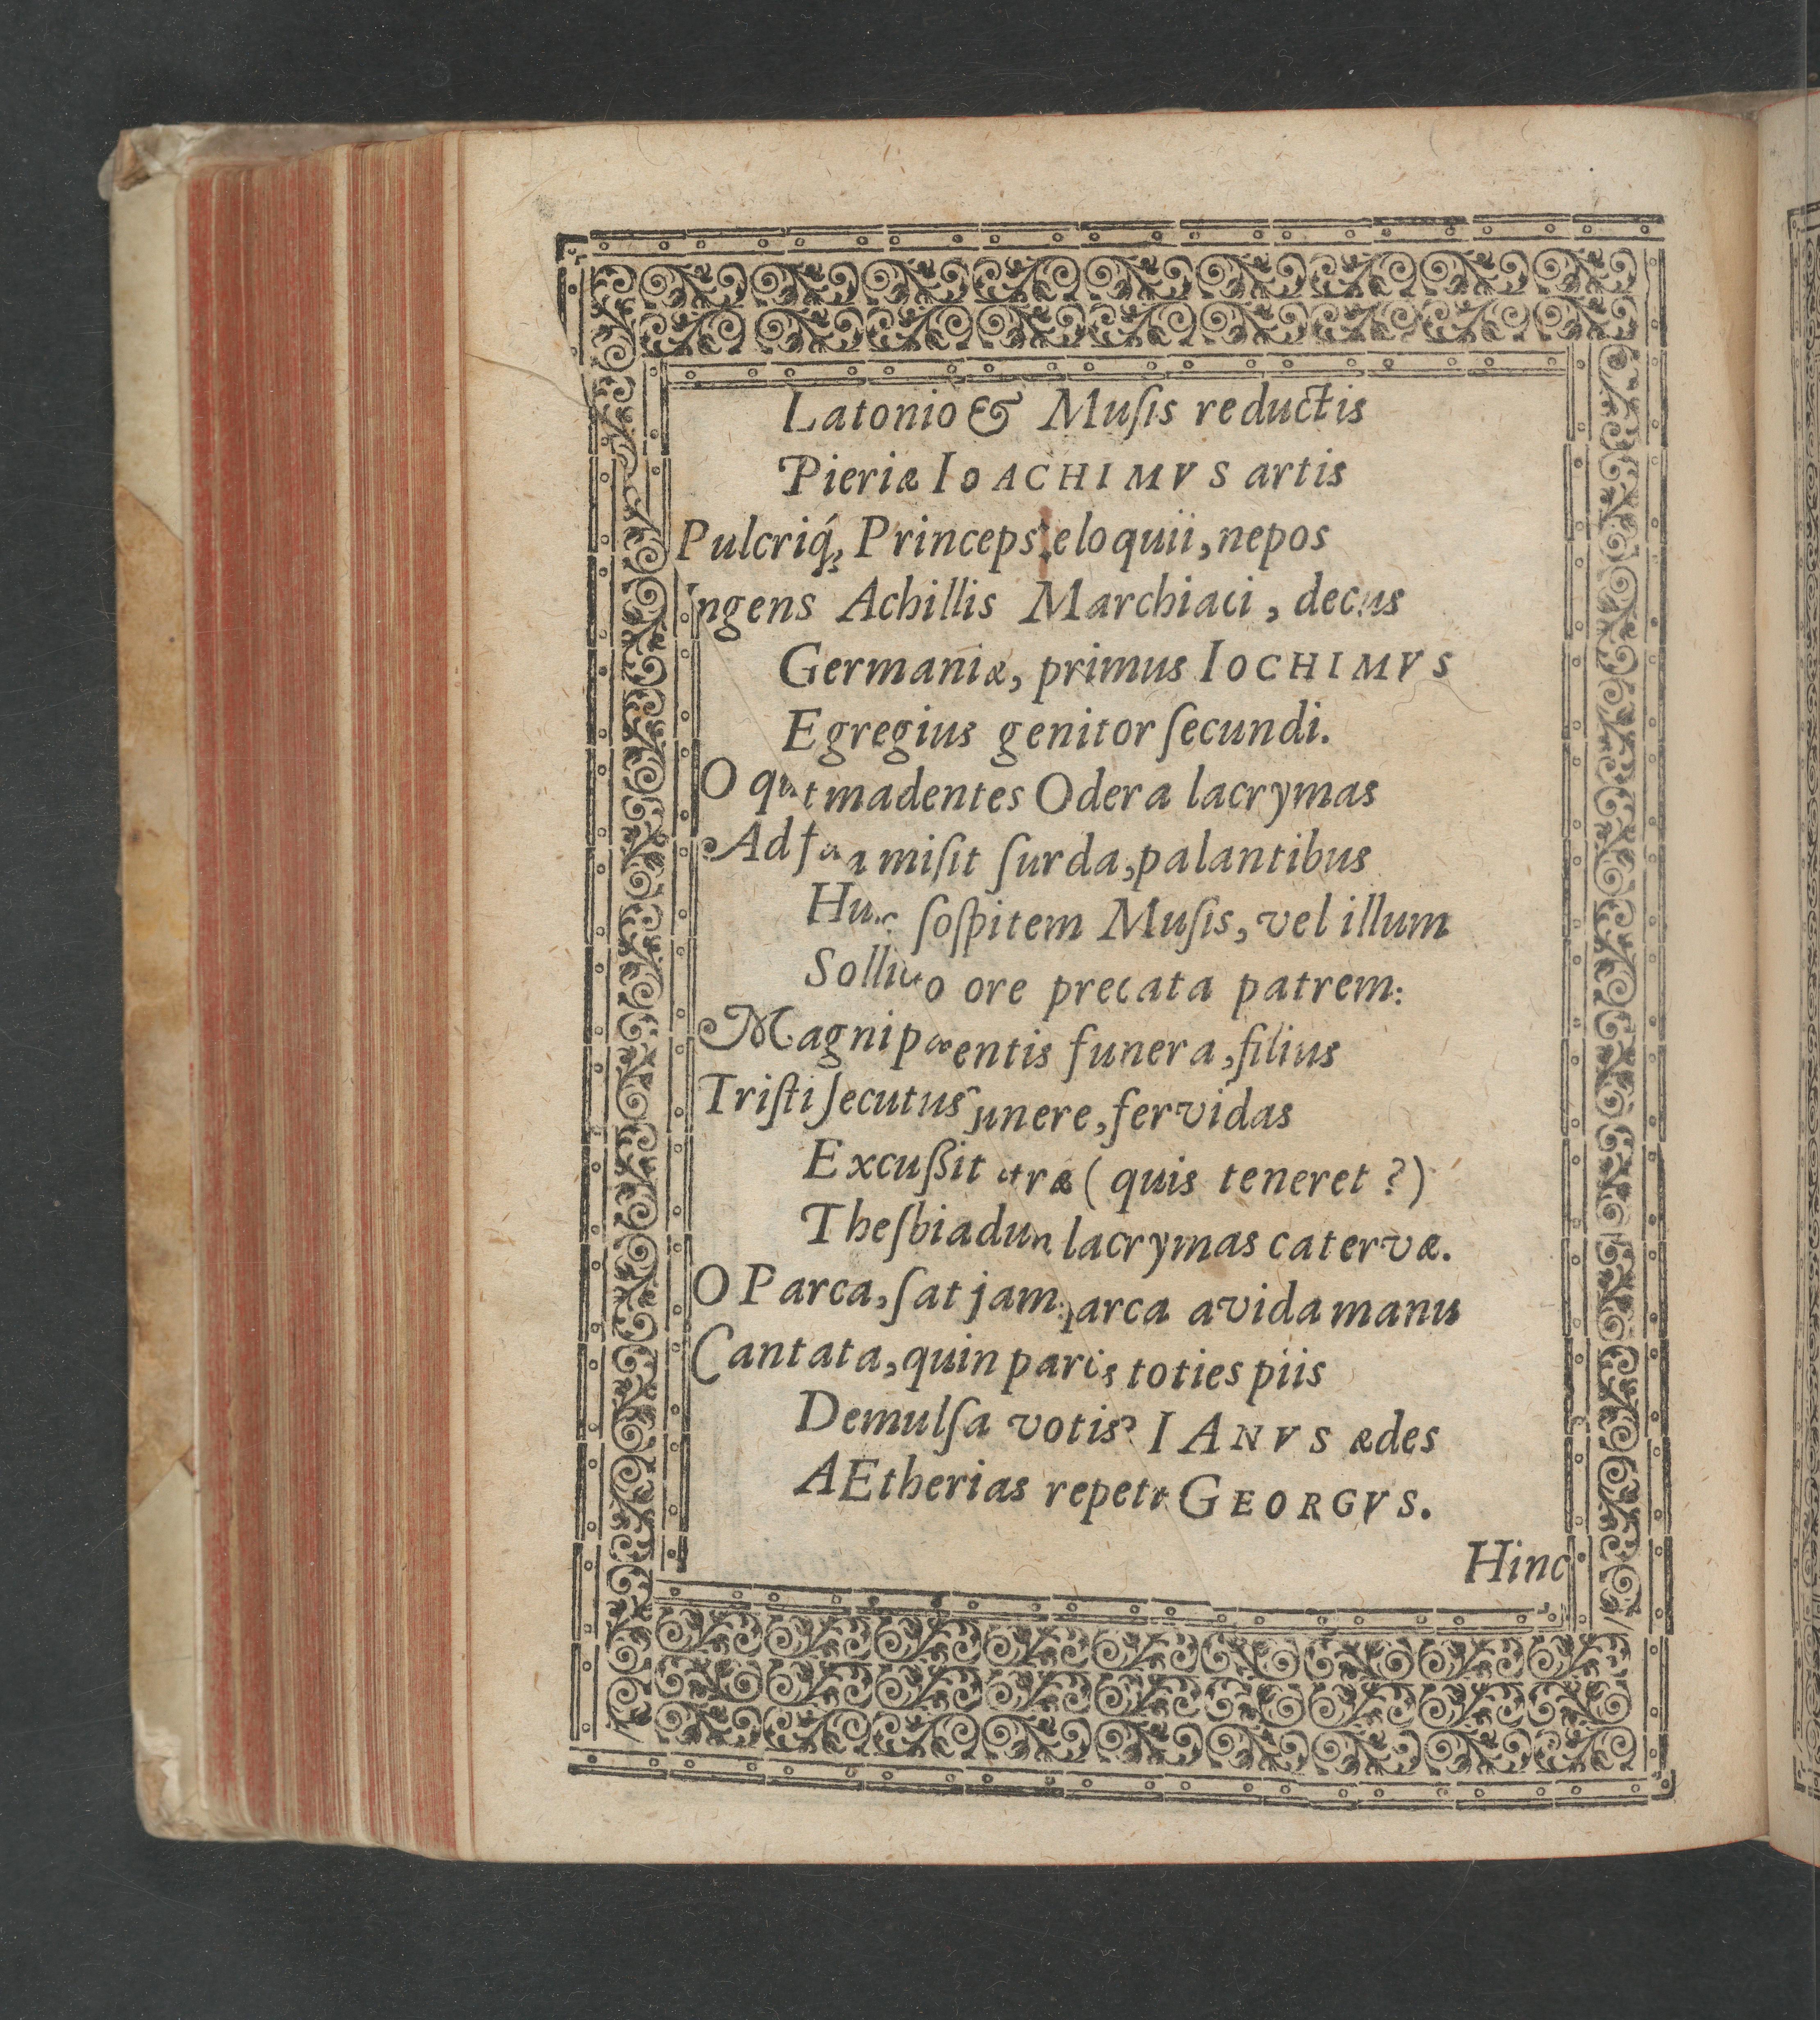 Latonio & Muſis reductis
Pieriæ IOACHIMVS artis
Pulcriq́; Princeps eloquii, nepos
Ingens Achillis Marchiaci, decus
Germaniæ, primus IOCHIMVS
Egregius genitor ſecundi.
O quot madentes Odera lacrymas
Ad miſit ſurda, palantibus
Hunc ſoſpitem Muſis, vel illum
ore precata patrem:
Magni parentis funera, filius
Triſti ſecutus funere, fervidas
Excuſsit atræ (quis teneret?)
Theſbiadum lacrymas catervæ.
O Parca, ſat jam, parca avida manu
Cantata, quin toties piis
Demulſa votis? IANVS ædes
AEtherias repetit GEORGVS.
Hinc